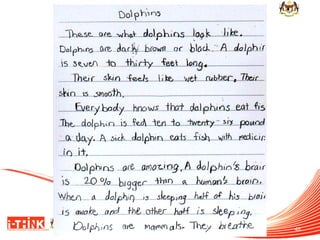 Dolphins
These are what dolphins look like.
Dolphins are darky brown or black. A dolphin
is seven to thirty feet long.
Their skin feels like wet rubber. Their
skin is smooth.
Everybody knows that dolphins eat fis
The dolphin is fed ten to twenty-six pound
a day. A sick dolphin eats fish with medicin
in it.
Dolphins are amazing. A dolphin's brain
is 20% bigger than a human's brain.
When a dolphin is sleeping half of his brain
is awake and the other half is sleeping.
Dolphins are mammals. They breathe
i-THINK